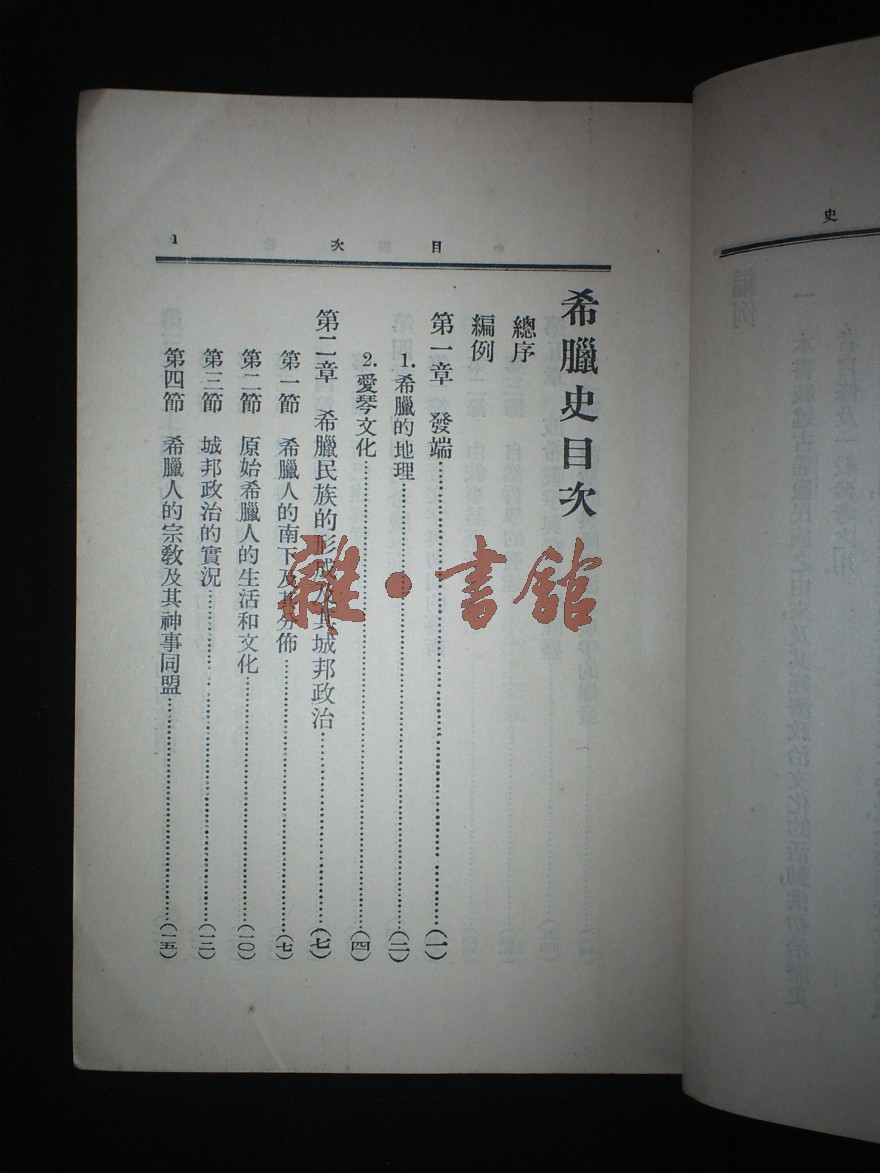 史
目次 1
希臘史目次
總序
編例
第一章 發端……(一)
1.希臘的地理……(二)
2.愛琴文化……(四)
第二章 希臘民族的形成及其城邦政治……(七)
第一節 希臘人的南下及其分佈……(七)
第二節 原始希臘人的生活和文化……(一〇)
第三節 城邦政治的實況……(一二)
第四節 希臘人的宗教及其神事同盟……(一五)
雜·書館